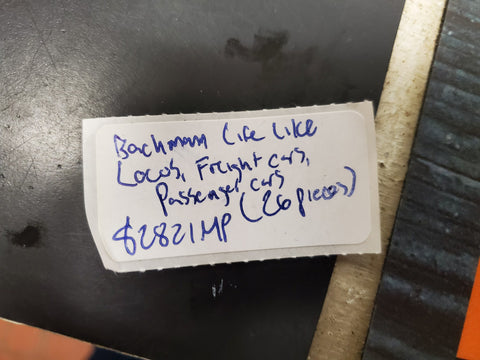 Bachmann Life Like
Locos, Freight cars,
Passenger cars
(26 pieces)
$2821MP